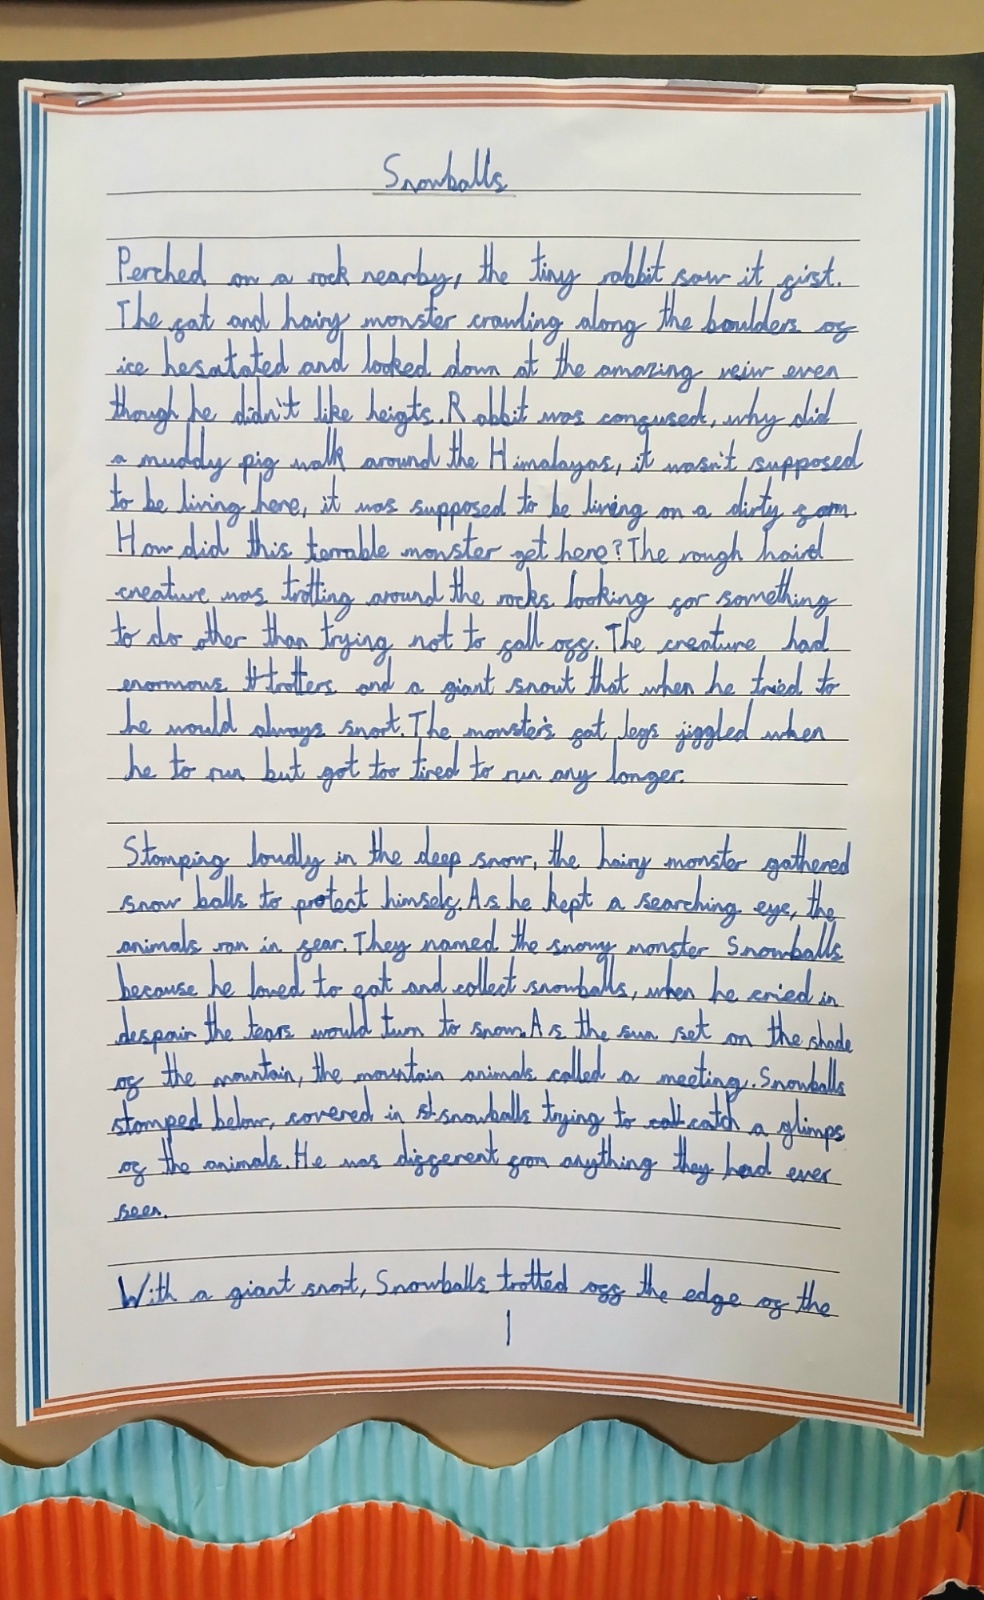 Snowballs
Perched on a rock nearby, the tiny rabbit saw it first.
The fat and hairy monster crawling along the boulders of
ice hesatated and looked down at the amazing veiw even
though he didn't like heigts. Rabbit was confused, why did
a muddy pig walk around the Himalayas, it wasn't supposed
to be living here, it was supposed to be living on a dirty farm.
How did this terrable monster get here? The rough haird
creature was trotting around the rocks looking for something
to do other than trying not to fall off. The creature had
enormous trotters and a giant snout that when he tried to
he would always snort. The monster's fat legs jiggled when
he to run but got too tired to run any longer.
Stomping loudly in the deep snow, the hairy monster gathered
snow balls to protect himself. As he kept a searching eye, the
animals ran in fear. They named the snowy monster Snowballs
because he loved to eat and collect snowballs, when he cried in
despair the tears would turn to snow. As the sun set on the shade
of the mountain, the mountain animals called a meeting. Snowballs
stomped below, covered in snowballs trying to catch a glimps
of the animals. He was different from anything they had ever
seen.
With a giant snort, Snowballs trotted off the edge of the
1